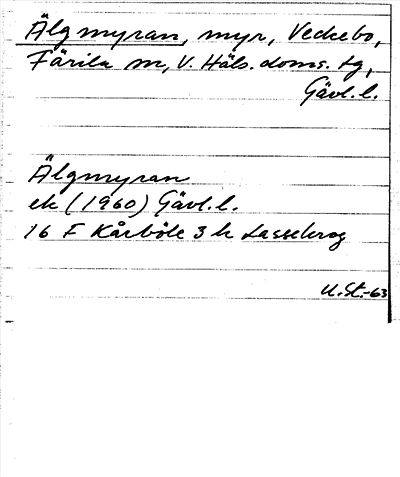 Älgmyran, myr, Veckebo,
Färila sn, V. Häls. doms. tg,
Gävl. l.
Älgmyran
ek (1960) Gävl. l.
16 F Kårböle 3 h Lassekrog
U. St. -63